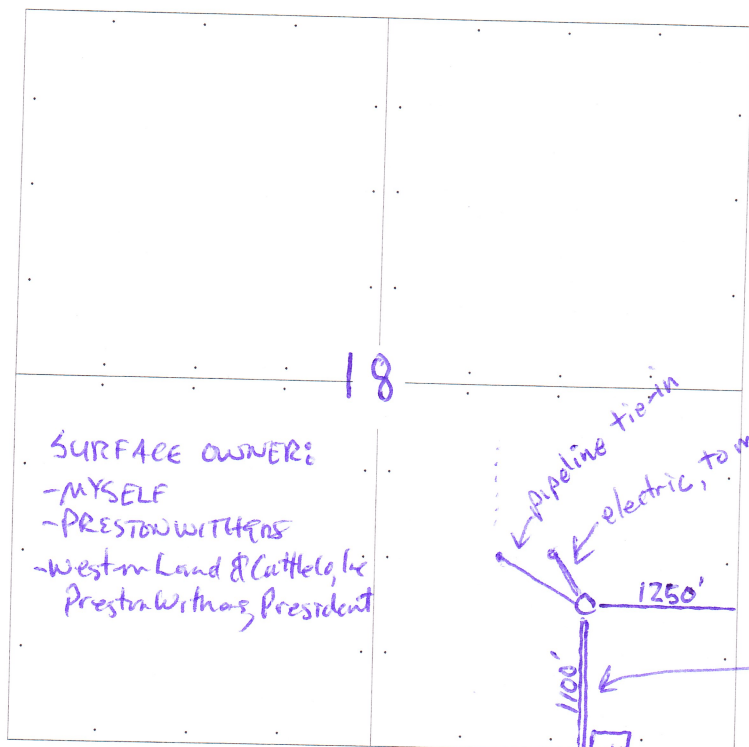 18
SURFACE OWNER:
-MYSELF
-PRESTON WITHERS
-Western Land & Cattle Co, Inc
Preston Withers, President
pipeline tie-in
electric, to
1250'
1100'